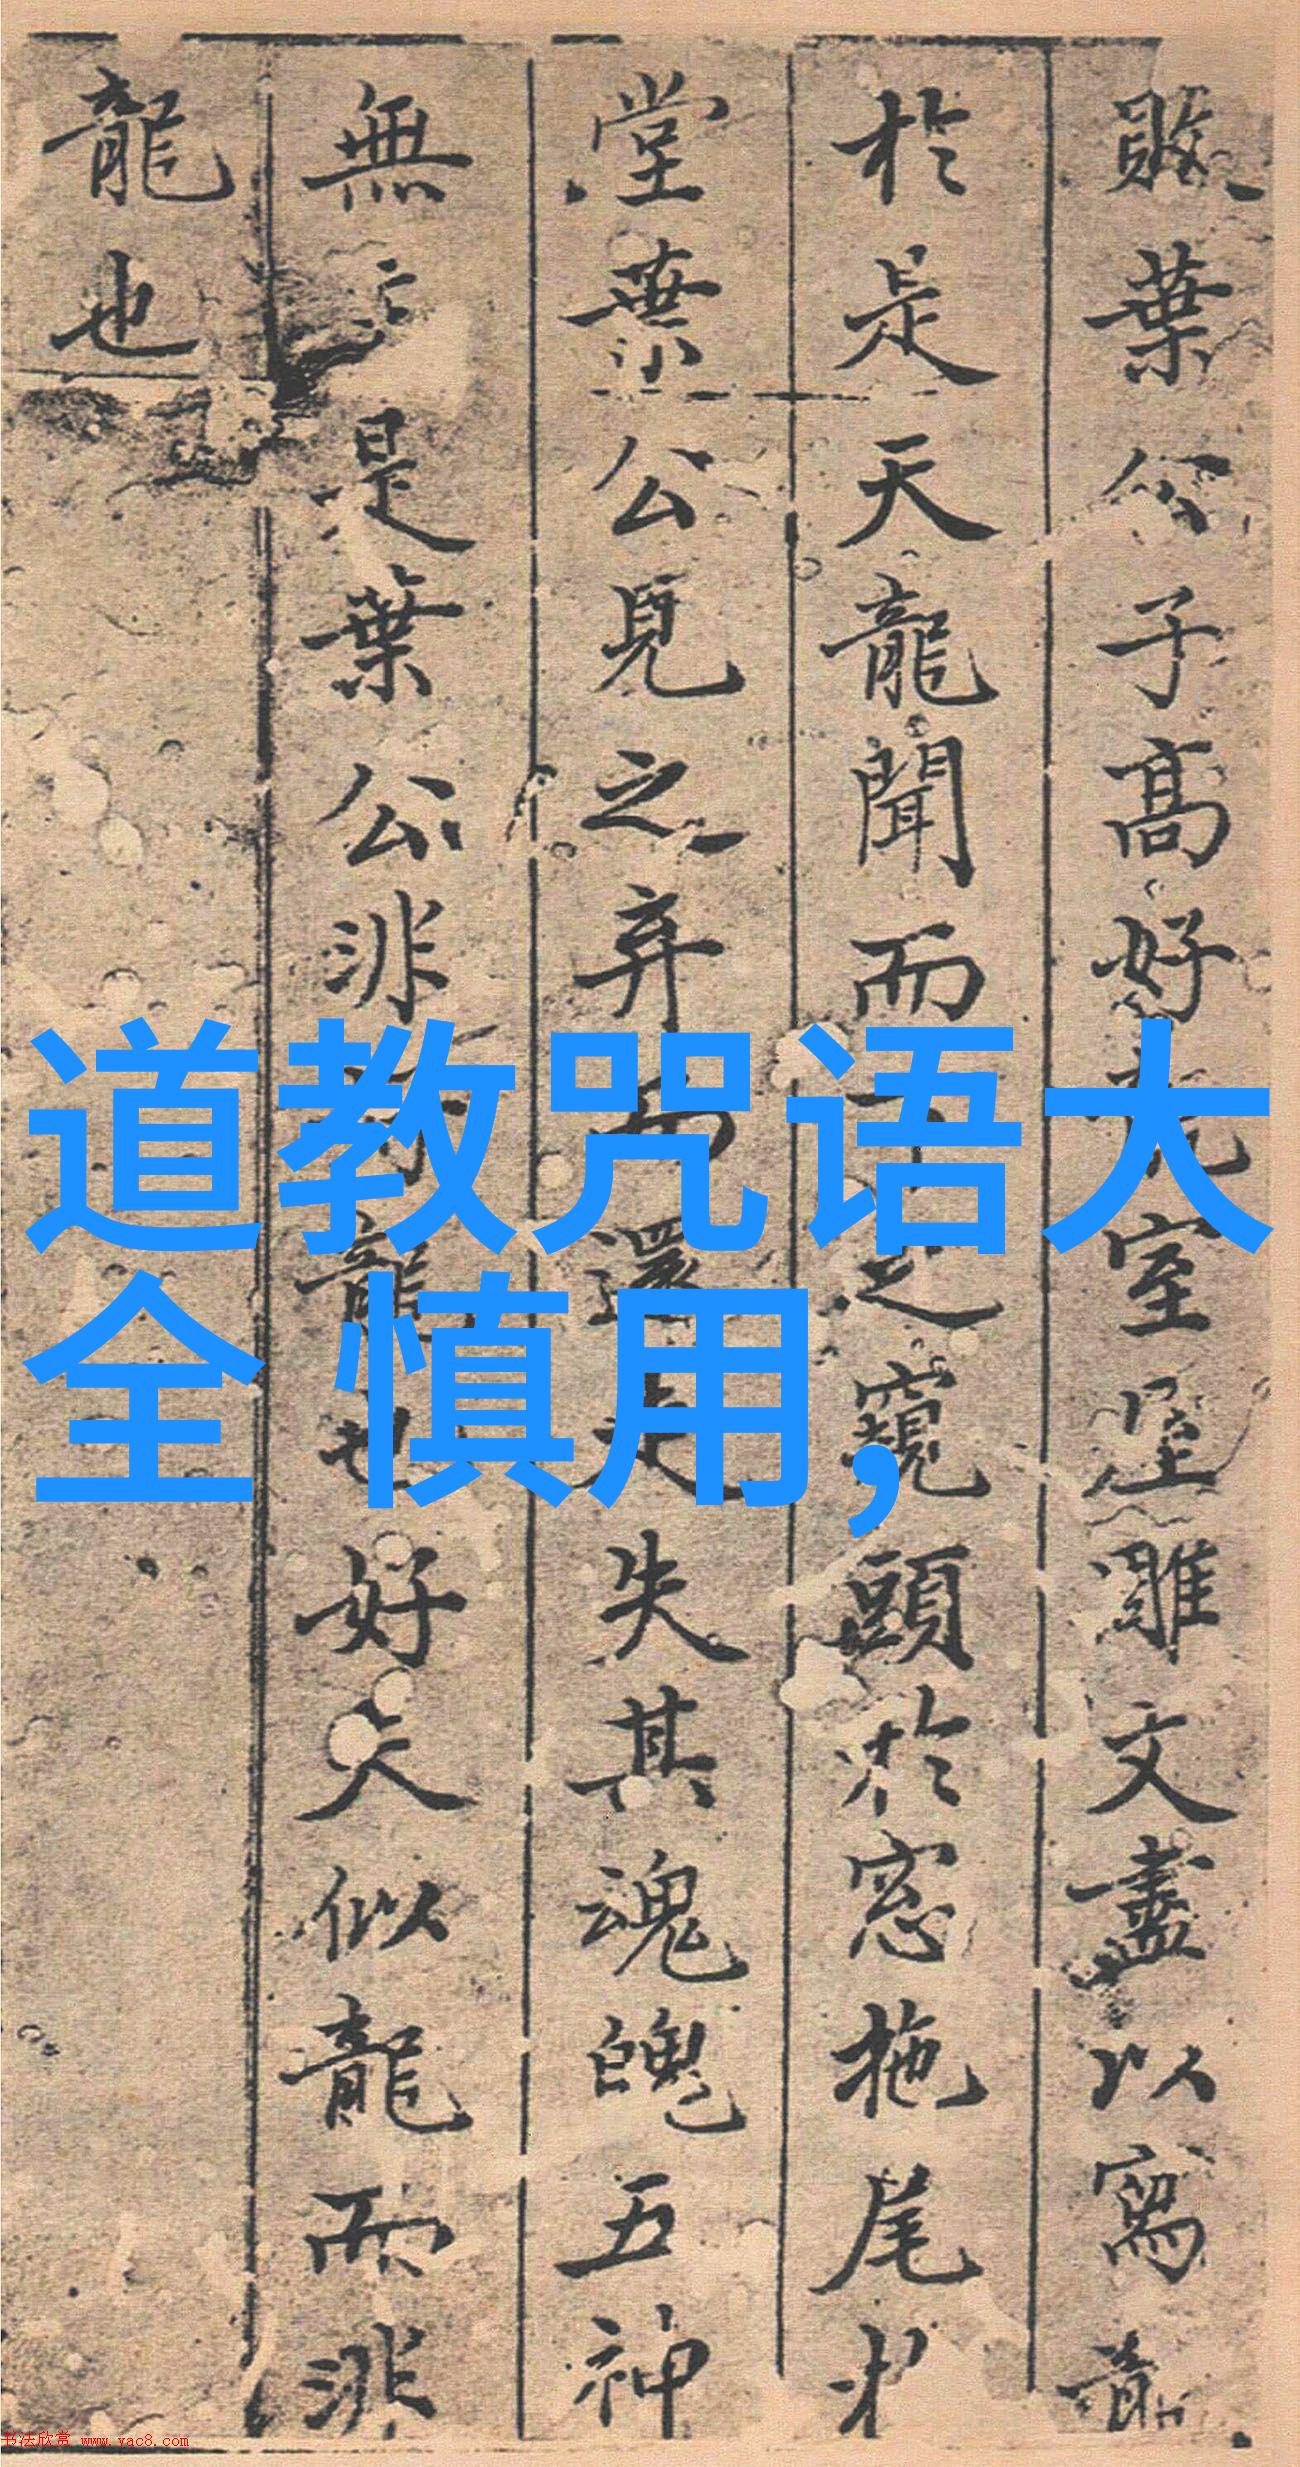 敗葉公子高好龍室屋雕文盡以寫龍
於是天龍聞而下之窺頭於窓拖尾於
堂葉公見之弃而還走失其魂魄五神
無主是葉公非好龍也好夫似龍而非
龍也
道教咒语大
全 慎用,
书法欣赏 www.yac8.com